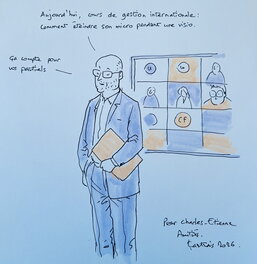 Aujourd'hui, cours de gestion internationale:
comment éteindre son micro pendant une visio.
Ça compte pour
vos partiels
CF
Pour Charles-Etienne
Amitiés.
2026